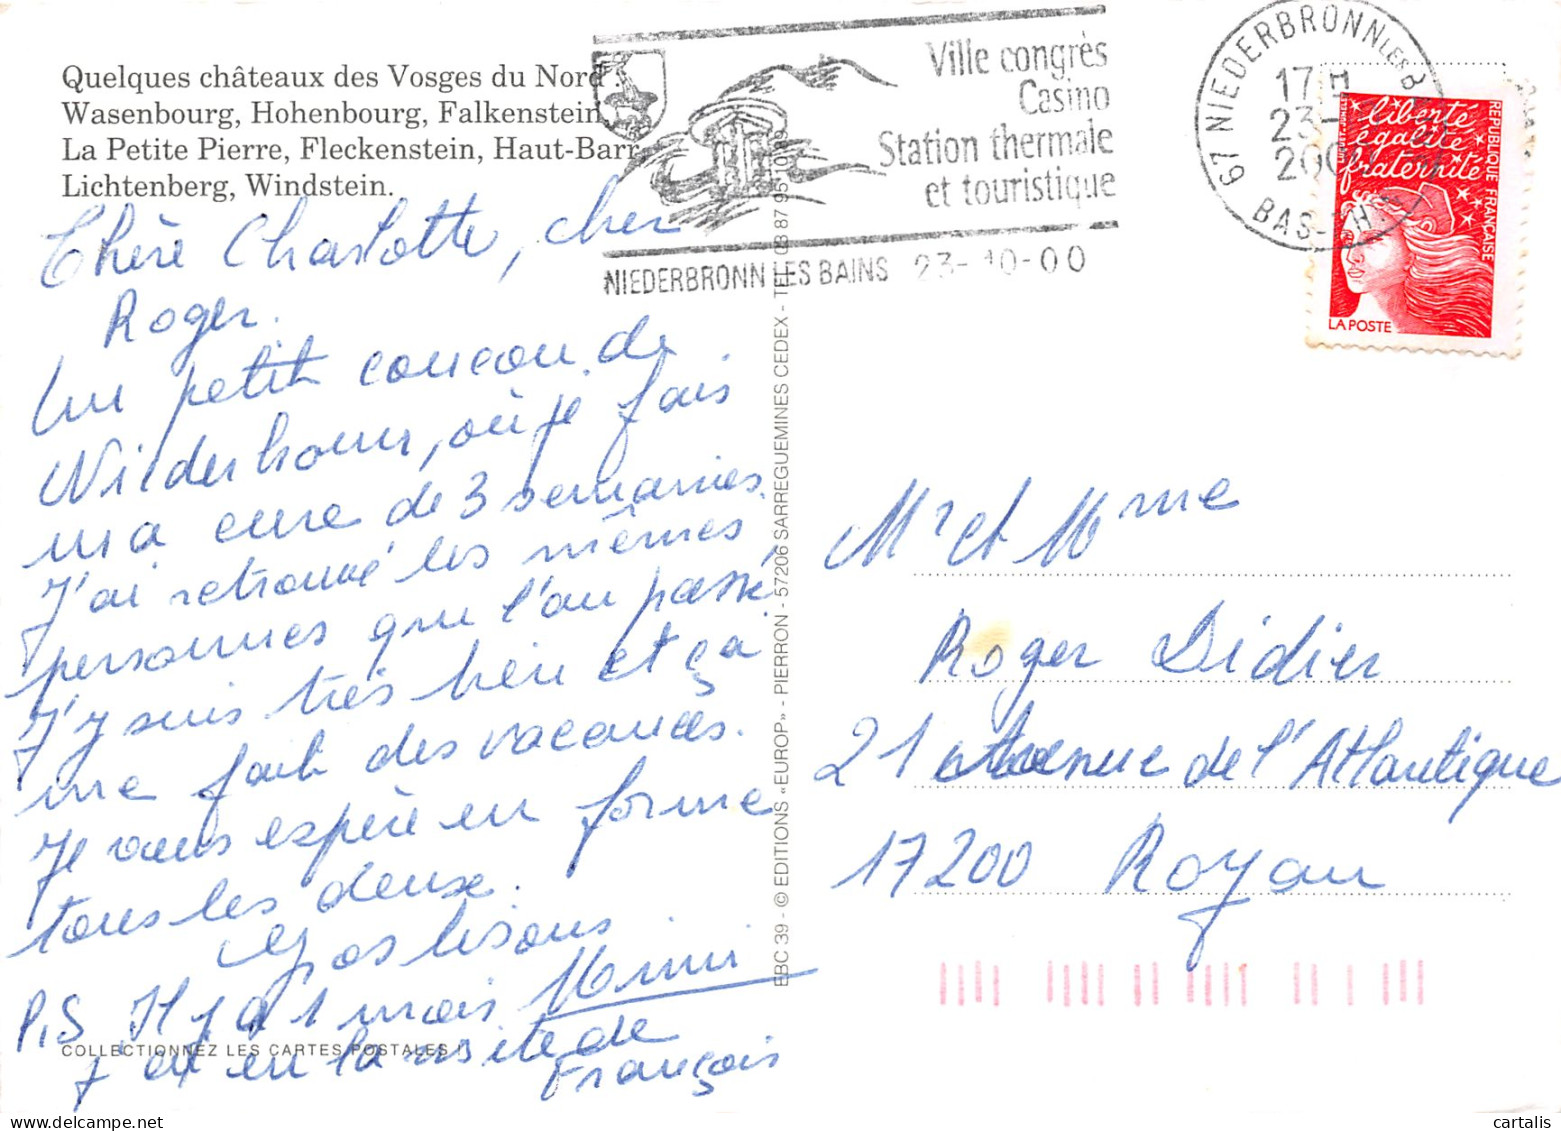 Quelques châteaux des Vosges du Nord
Wasenbourg, Hohenbourg, Falkenstein,
La Petite Pierre, Fleckenstein, Haut-Barr
Lichtenberg, Windstein.
Ville congrès
Casino
Station thermale
et touristique
NIEDERBRONN LES BAINS 23-10-00
67 NIEDERBRONN LES B
17H
23-
200
BAS-RH
liberté
égalité
fraternité
REPUBLIQUE FRANÇAISE
LA POSTE
Chère Charlotte, cher
Roger.
Un petit coucou de
Niederbronn, où je fais
ma cure de 3 semaines.
J'ai retrouvé les mêmes
personnes que l'an passé,
J'y suis très bien et ça
me fait des vacances.
Je vous espère en forme
tous les deux.
Gros bisous
Mimi
P.S Il y a 1 mois
j'ai eu la visite de
François
COLLECTIONNEZ LES CARTES POSTALES !
EBC 39 - © EDITIONS «EUROP» - PIERRON - 57206 SARREGUEMINES CEDEX - TEL 03 87 95 10 89
Mr et Mme
Roger Didier
21 avenue de l'Atlantique
17200 Royan
cartalis